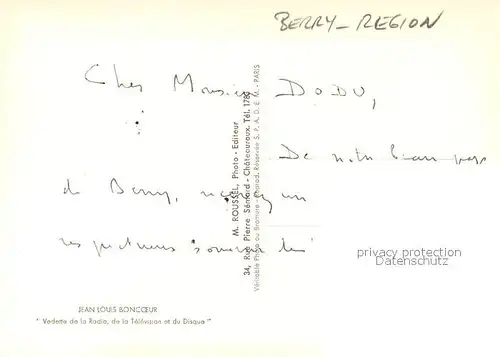 BERRY-REGION
Cher Monsieur DODU,
De notre beau pays
du Berry, recevez un
respectueux souvenir
M. ROUSSEL, Photo - Editeur
34, Rue Pierre Sémard - Châteauroux. Tél. 1780
Véritable Photo au Bromure - Reprod. Réservée S. P. A. D. E. M. - PARIS
privacy protection
Datenschutz
JEAN LOUIS BONCŒUR
" Vedette de la Radio, de la Télévision et du Disque "